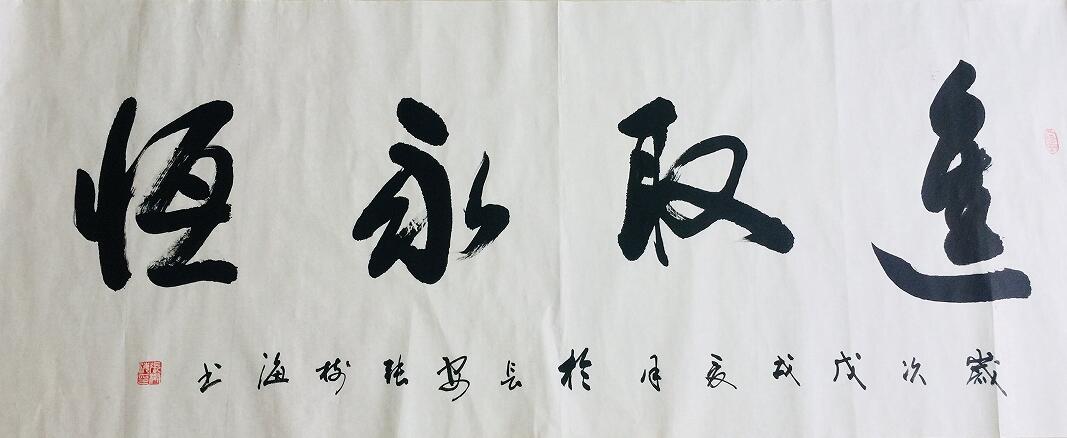 進取永恒
歲次戊戌夏月於長安張樹海书